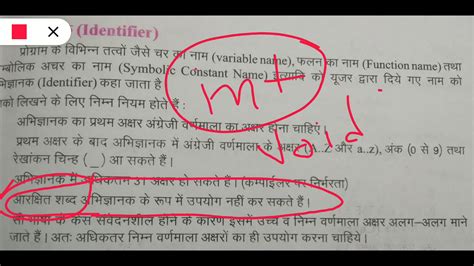 (Identifier)
प्रोग्राम के विभिन्न तत्वों जैसे चर का नाम (variable name), फलन का नाम (Function name) तथा
म्बोलिक अचर का नाम (Symbolic Constant Name) इत्यादि को यूजर द्वारा दिये गए नाम को
भिज्ञानक (Identifier) कहा जाता है
को लिखने के लिए निम्न नियम होते हैं :
m+
अभिज्ञानक का प्रथम अक्षर अंग्रेजी वर्णमाला का अक्षर होना चाहिएं।
void
प्रथम अक्षर के बाद अभिज्ञानक में अंग्रेजी वर्णमाला के अक्षर (A..Z और a..z), अंक (0 से 9) तथा
रेखांकन चिन्ह (_) आ सकते हैं।
अभिज्ञानक में अधिकतम 31 अक्षर हो सकते हैं। (कम्पाईलर पर निर्भरता)
आरक्षित शब्द अभिज्ञानक के रूप में उपयोग नहीं कर सकते हैं।
भाषा के केस संवेदनशील होने के कारण इसमें उच्च व निम्न वर्णमाला अक्षर अलग-अलग माने
जाते हैं। अतः अधिकतर निम्न वर्णमाला अक्षरों का ही उपयोग करना चाहिये।